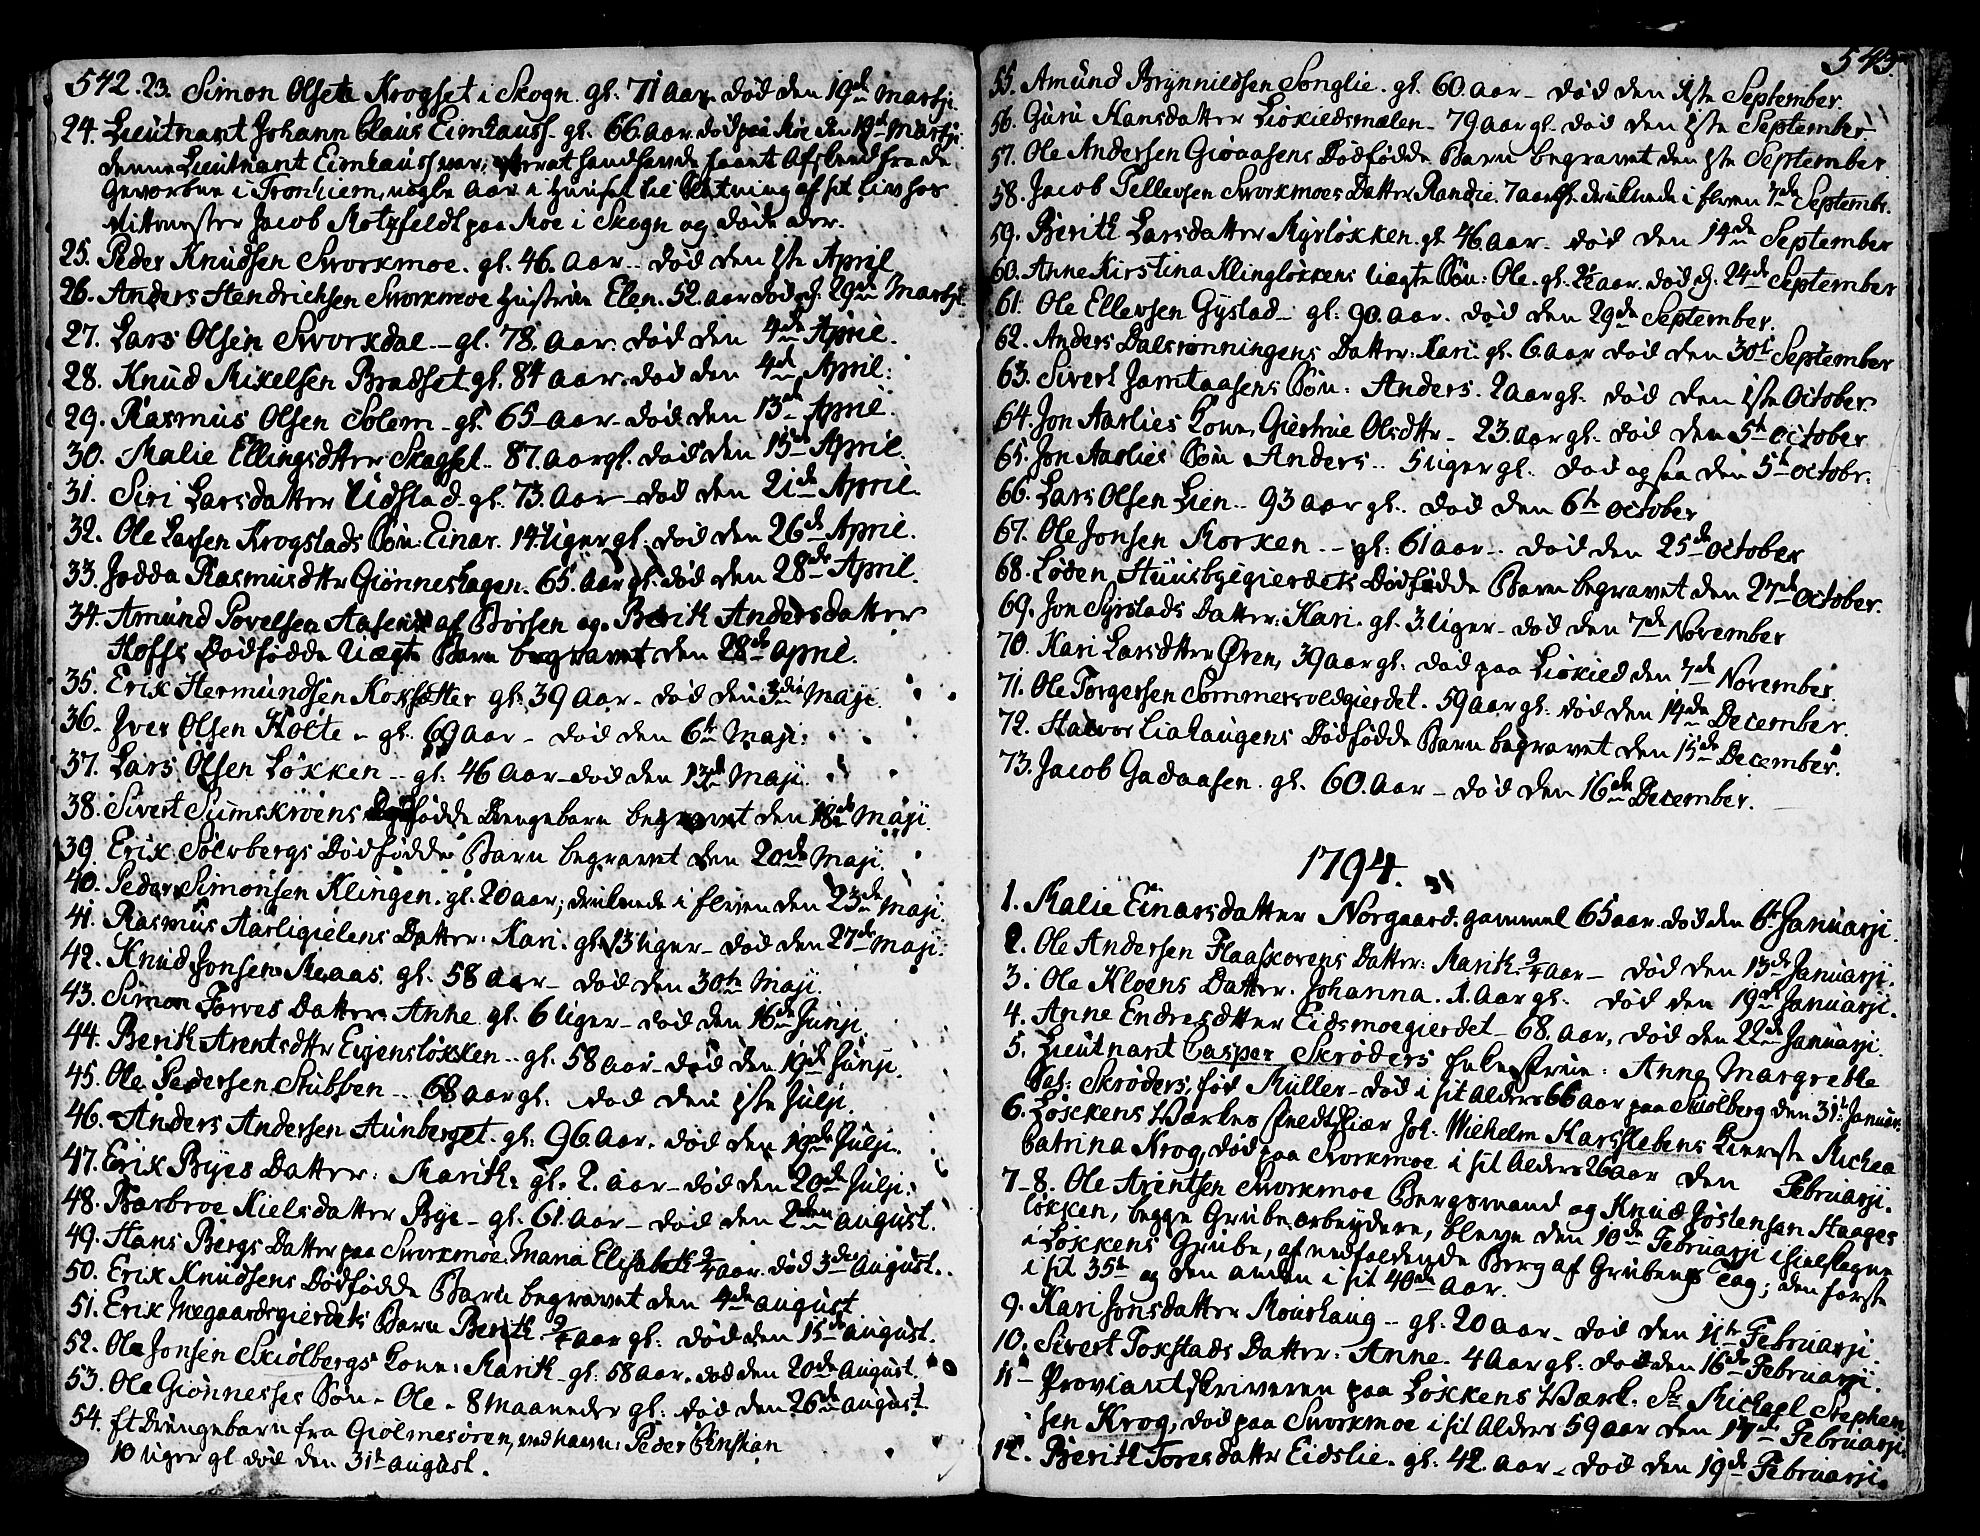 542.
23. Simon Olsen Krogset i Skogn. gl. 71 Aar død den 19de Martji.
24. Lieutnant Johann Claus Eimhaus. gl. 66. aar. død paa Moe den 19de Martji.
denne Lieutnant Eimhauss var Afskeed fra de
Gevorbne i Tronhiem, nogle Aar i Huuset til Slutning af sit Liv hos
Rittmester Jacob Motzfeldt paa Moe i Skogn og døde der.
25. Peder Knudsen Sworkmoe. gl. 46. Aar.. død den 1ste April
26. Anders Hendrichsen Sworkmoe Hustrue Elen. 52. aar død d. 29de Martji
27. Lars Olsen Sworkdal.- gl. 78. Aar. død den 4de April.
28. Knud Mikelsen Bradset gl. 84 aar. død den 4de April:
29. Rasmus Olsen Solem - gl. 65 - aar - død den 13de April.
30. Malie Ellingsdtter Skogset.. 87. aar gl. død den 15de April.
31. Siri Larsdatter Udstad - gl. 73. Aar - død den 21de April.
32. Ole Larsen Krogstads Søn: Einar. 14 Uger gl. død den 26de April.
33. Jodda Rasmusdttr Giønneshagen. 65. Aar gl. død den 28de April.
34. Amund Povelsen Aasen af Børsen og Berit Andersdatter
Hoffs Dødfødde Uægte Barn begravet den 28de april.
35. Erik Hermundsen Koksætter gl. 39 Aar - død den 3die Maji.
36. Iver Olsen Holte - gl. 69 Aar - død den 6te Maji:
37. Lars Olsen Løkken.. gl. 46 Aar - død den 13de Maji.
38. Sivert Sumskrøens Dødfødde Drengebarn begravet den 18de Maji.
39. Erik Sølvbergs Dødfødde Barn begravet den 20de Maji.
40. Peder Simonsen Klingen. gl. 20 aar; druknede i Elven den 23de Maji.
41. Rasmus Aasligielens Datter: Kari. gl. 13 uger - død den 27de Maji.
42. Knud Jonsen Meaas. gl. 58 Aar - død den 30te Maji.
43. Simon Torves Datter: Anne. gl. 6 Uger - død den 16de Junji.
44. Berit Arentsdttr Evjensløkken.. gl. 58 aar - død den 19de Junji.
45. Ole Pedersen Stubben.. 68 aar gl. død den 1ste Julji.
46. Anders Andersen Aunberget. gl. 96. Aar. død den 19de Julji.
47. Erik Byes Datter: Marith. gl. 2. aar - død den 20de Julji.
48. Barbroe Nielsdatter Bye - gl. 61. Aar - død den 2den August.
49. Hans Bergs Datter paa Sworkmoe. Maria Elisabeth 3/4 aar. død 3die August..
50. Erik Knudsens Dødfødde Barn begravet den 4de august
51. Erik Megaardsgierdets Barn Berith 3/4 aar gl. død den 15de august.
52. Ole Jonsen Skiølbergs Kone: Marith - gl. 58 aar. død den 20de August.
53. Ole Giønnesses Søn - Ole - 8 Maaneder gl. død den 26de august
54. Et Drengebarn fra Giølmesøren, ved Navn: Peder Christian
10 uger gl død den 31te august.
543.
55. Amund Brynnildsen Songlie. gl. 60. aar - død den 1ste September.
56. Guru Hansdatter Liøkiedsmælen - 79 aar gl. død den 1ste September
57. Ole Andersen Gioaasens Dødfødde Barn begravet den 1ste September.
58. Jacob Tellevsen Sworkmoes Datter Randie. 7 aar gl. druknede i Elven 7de September.
59. Berith Larsdatter Myrløkken. gl. 46. aar - død den 14de September
60. Anne Kirstina Klingløkkens Uægte Søn: Ole. gl. 2 1/2 aar. død d. 24de September
61. Ole Ellevsen Gystad - gl: 90. aar. død den 29de September.
62. Anders Dalsrønningens Datter: Kari. gl. 6. aar død den 30te September
63. Sivert Jamtaasens Søn: Anders. 2 aar gl. død den 1ste October.
64. Jon Aaslies Kone, Giertrue Olsdttr - 23. aar gl. død den 5te October
65. Jon Aaslies Søn Anders.. 5 uger gl. død og saa den 5te Octobr.
66. Lars Olsen Lien.. 93 aar gl.. død den 6te October
67. Ole Jonsen Morken.. gl: 61 aar.. død den 25de October
68. Løden Huusbyegierdets Dødfødde Barn begravet den 27de October.
69. Jon Syrstads Datter: Kari. gl. 3 uger - død den 7de November
70. Kari Larsdtter Øren, 39 aar gl. død paa Liøkied den 7de November.
71. Ole Torgersen Sommersvoldgierdet. 59 aar gl. død den 14de December.
72. Halvor Liahaugens Dødfødde Barn begravet den 15de December.
73. Jacob Gadaasen. gl. 60. Aar - død den 16de December.
1794.
1. Malie Einarsdatter Norgaard. gammel 65 aar. død den 6te Januarji.
2. Ole Andersen Flaaskovens Datter: Marith 3/4 aar - død den 13de Januarji.
3. Ole Kloens Datter. Johanna. 1. Aar gl. død den 19de Januarji.
4. Anne Endresdtter Eidsmoegierdet - 68. aar, død den 22de Januarji.
5. Lieutnant Casper Skrøders Frue: Anna Margrethe
Sal: Skrøders, fød Müller - død i sit Alders 66 aar paa Skiølberg den 31te Januar.
6. Løkkens Værkes Joh: Wilhelm Karslebens Kiereste Michea
Catrina Krog, død paa Sworkmoe i sit Alders 26 aar den Februarji.
7-8. Ole Arentsen Sworkmoe Bergsmand og Knud Jøstensen Haages
løkken, begge Grubearbeydere, bleve den 10de Februarji ihielslagne
i Løkkens Grube, af nedfaldende Berg af Grubens Tag; den første
i sit 35te og den anden i sit 40de Aar.
9. Kari Jonsdatter Moushaug.. gl. 20 aar - død den 11te Februarji.
10. Sivert Tokstads Datter: Anne. 4 aar gl: død den 16de Februarji.
11 - Proviantskriveren paa Løkkens Værk. Sr. Michael Stephen
sen Krog, død paa Sworkmoe i sit Alders 59 aar den 17de Februarji.
12. Berith Toresdattr Eidslie. gl. 42. aar - død den 19de Februarji.